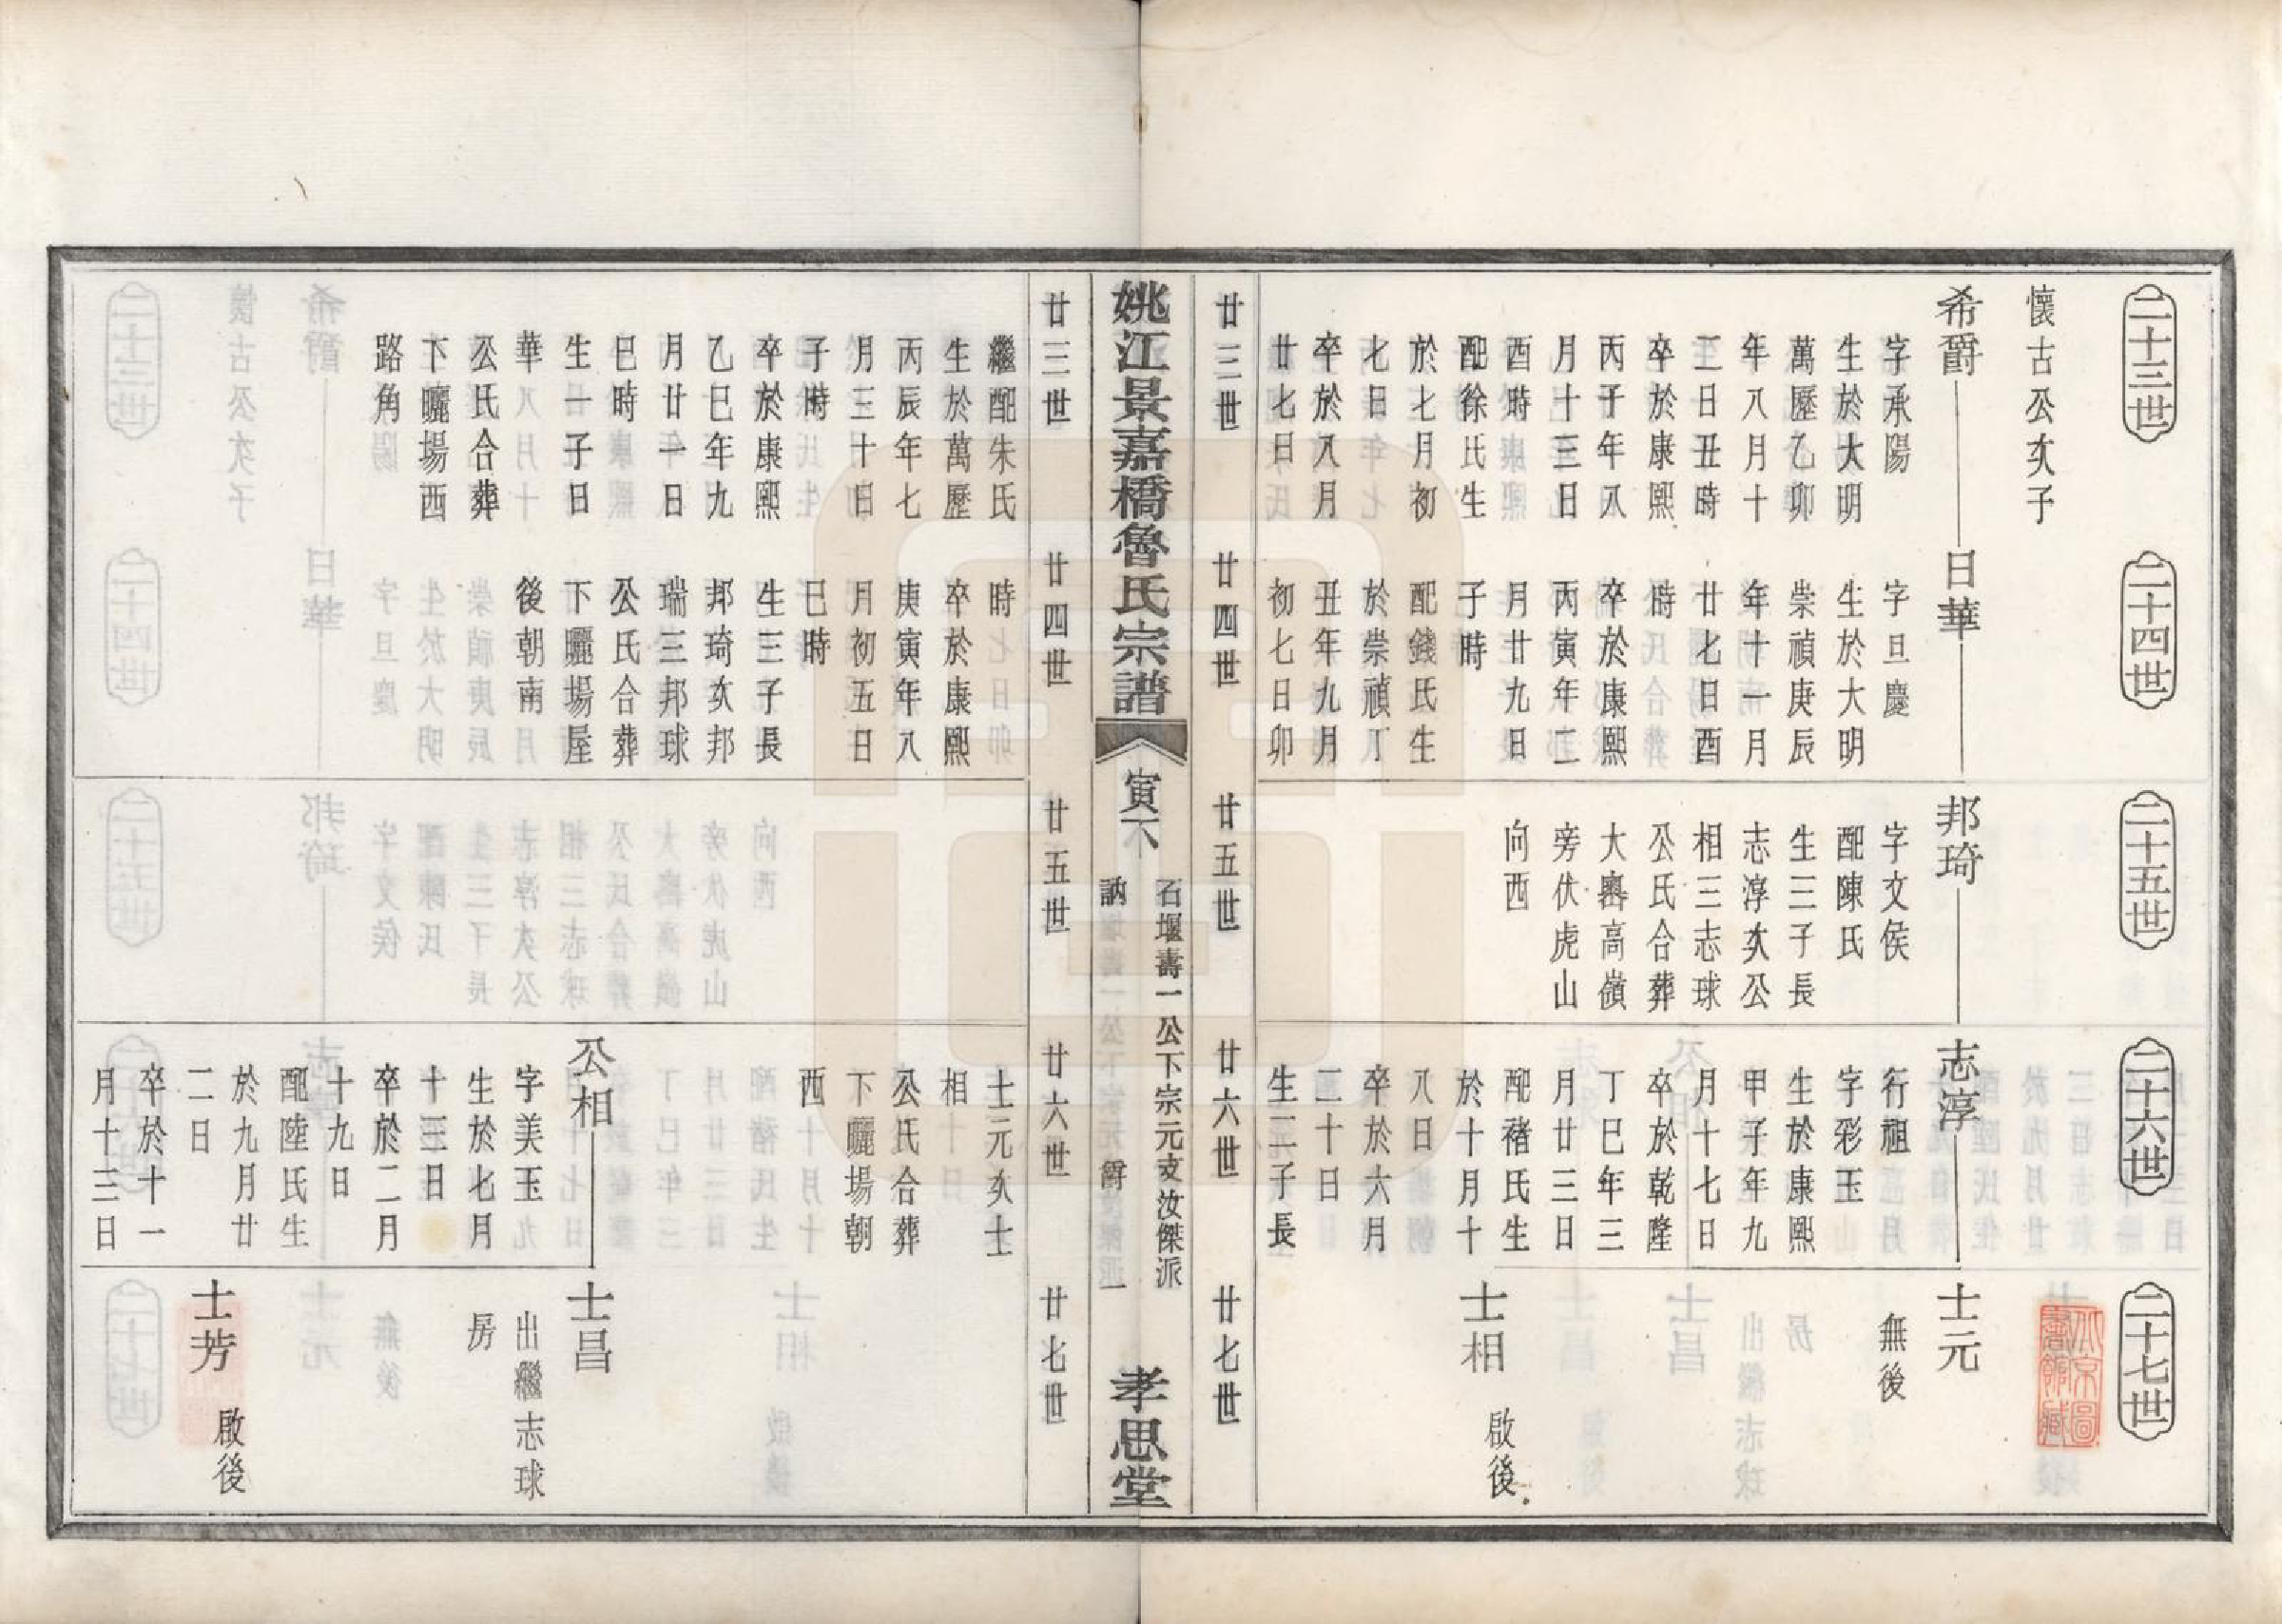 二十三世
懷古公次子
希爵
字承陽
生於大明
萬歷乙卯
年八月十
二日丑時
卒於康熙
丙子年八
月十三日
酉時
配徐氏生
於七月初
七日
卒於八月
廿七日
二十四世
日華
字旦慶
生於大明
崇禎庚辰
年十一月
廿七日酉
時
卒於康熙
丙寅年二
月廿九日
子時
配錢氏生
於崇禎丁
丑年九月
初七日卯
二十五世
邦琦
字文侯
配陳氏
生三子長
志淳次公
相三志球
公氏合葬
大嶴高嶺
旁伏虎山
向西
二十六世
志淳
行祖
字彩玉
生於康熙
甲子年九
月十七日
卒於乾隆
丁巳年三
月廿三日
配褚氏生
於十月十
八日
卒於六月
二十日
生二子長
二十七世
士元
無後
士相
啟後
廿三世
廿四世
廿五世
廿六世
廿七世
姚江景嘉橋魯氏宗譜
寅下
石堰壽一公下宗元支汝傑派
訥
爵
一
孝思堂
廿三世
廿四世
廿五世
廿六世
廿七世
繼配朱氏
生於萬歷
丙辰年七
月三十日
子時
卒於康熙
乙巳年九
月廿一日
巳時
生一子日
華
公氏合葬
下曬場西
路角
時
卒於康熙
庚寅年八
月初五日
巳時
生三子長
邦琦次邦
瑞三邦球
公氏合葬
下曬場屋
後朝南
士元次士
相
公氏合葬
下曬場朝
西
公相
字美玉
生於七月
十三日
卒於二月
十九日
配陸氏生
於九月廿
二日
卒於十一
月十三日
士昌
出繼志球
房
士芳
啟後